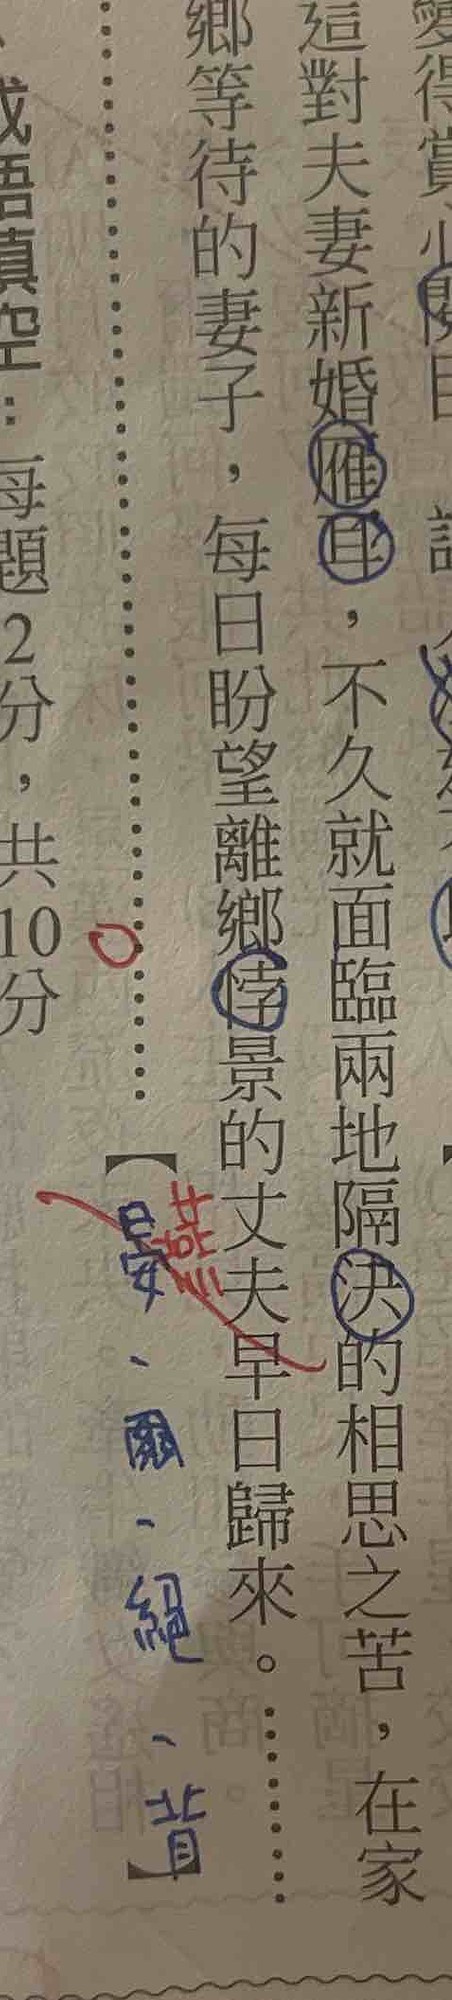 得賞心
這對夫妻新婚雁耳，不久就面臨兩地隔決的相思之苦，在家
鄉等待的妻子，每日盼望離鄉悖景的丈夫早日歸來。……
燕
……【晏、爾、絕、背】
成語填空：每題2分，共10分